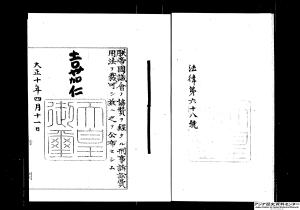 法律第六十八號
朕帝國議會ノ協賛ヲ經タル刑事訴訟費
用法ヲ裁可シ茲ニ之ヲ公布セシム
嘉仁
天皇
御璽
大正十年四月十一日
アジア歴史資料センター